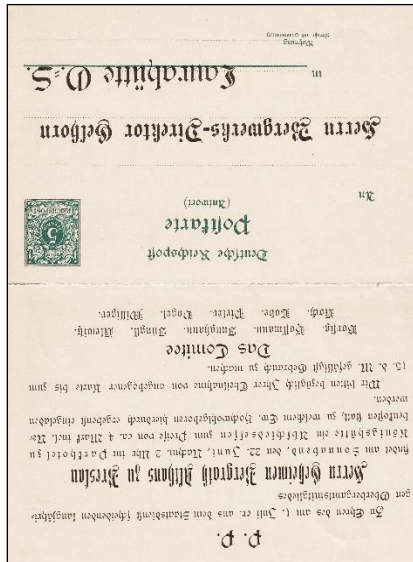 P. P.
Zu Ehren des am 1. Juli cr. aus dem Staatsdienst scheidenden langjähri-
gen Oberbergamtsmitgliedes
Herrn Geheimen Bergrath Althans zu Breslau
findet am Sonnabend, den 22. Juni, Nachm. 2 Uhr im Parkhotel zu
Königshütte ein Abschiedsessen zum Preise von ca. 4 Mark incl. Ne-
benkosten statt, zu welchem Ew. Hochwohlgeboren hierdurch ergebenst eingeladen
werden.
Wir bitten bezüglich Ihrer Theilnahme von angebogener Karte bis zum
15. d. M. gefälligst Gebrauch zu machen.
Das Comitee
Borsig. Hoffmann. Junghann. Jüngst.
Koch. Lobe. Pieler. Vogel. Williger.
Deutsche Reichspost
Postkarte
(Antwort)
5
REICHSPOST
An
Herrn Bergwerks-Direktor Gelhorn
in
Laurahütte O.-S.
Wohnung
(Straße und Hausnummer)